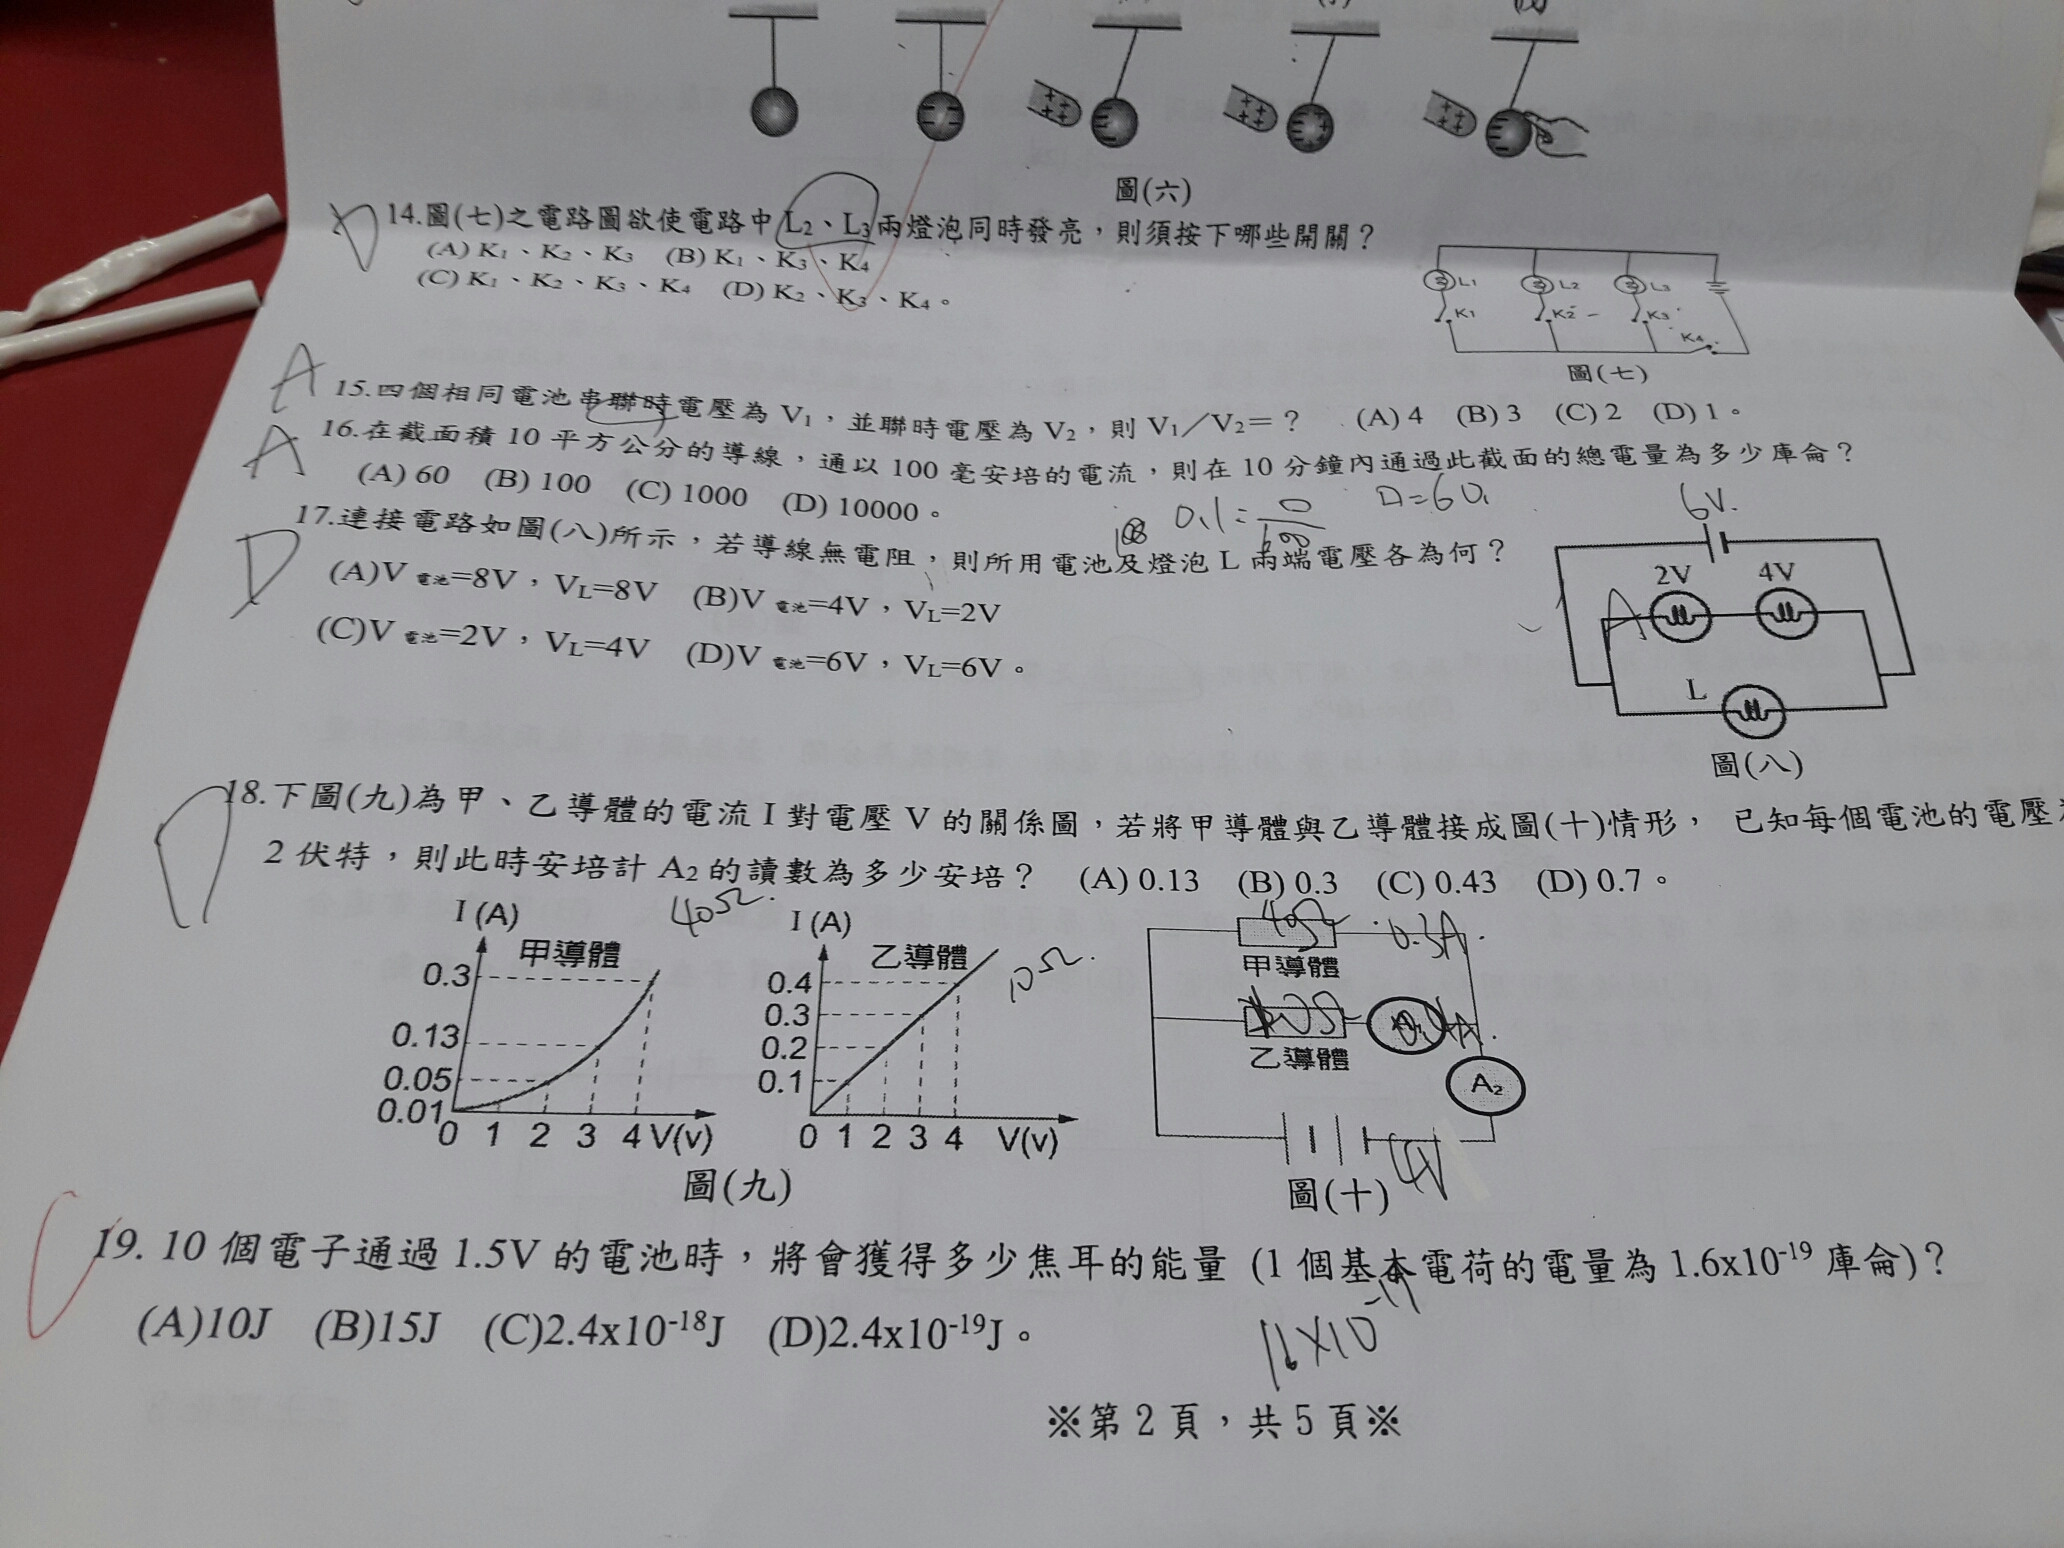 圖(六)
D 14.圖(七)之電路圖欲使電路中 L₂、L₃兩燈泡同時發亮，則須按下哪些開關？
(A) K₁、K₂、K₃ (B) K₁、K₃、K₄
(C) K₁、K₂、K₃、K₄ (D) K₂、K₃、K₄。
L₁ L₂ L₃
K₁ K₂ K₃ K₄
圖(七)
A 15.四個相同電池串聯時電壓為 V₁，並聯時電壓為 V₂，則 V₁／V₂=？ (A) 4 (B) 3 (C) 2 (D) 1。
A 16.在截面積 10 平方公分的導線，通以 100 毫安培的電流，則在 10 分鐘內通過此截面的總電量為多少庫侖？
(A) 60 (B) 100 (C) 1000 (D) 10000。
D 17.連接電路如圖(八)所示，若導線無電阻，則所用電池及燈泡 L 兩端電壓各為何？
(A)V 電池=8V，VL=8V (B)V 電池=4V，VL=2V
(C)V 電池=2V，VL=4V (D)V 電池=6V，VL=6V。
6V.
2V 4V
L
圖(八)
D 18.下圖(九)為甲、乙導體的電流 I 對電壓 V 的關係圖，若將甲導體與乙導體接成圖(十)情形， 已知每個電池的電壓
2 伏特，則此時安培計 A₂ 的讀數為多少安培？ (A) 0.13 (B) 0.3 (C) 0.43 (D) 0.7。
40Ω.
I (A)
甲導體
0.3
0.13
0.05
0.01
0 1 2 3 4 V(v)
I (A)
乙導體
10Ω.
0.4
0.3
0.2
0.1
0 1 2 3 4 V(v)
圖(九)
40Ω 0.3A.
甲導體
乙導體
A₂
4V
圖(十)
19. 10 個電子通過 1.5V 的電池時，將會獲得多少焦耳的能量 (1 個基本電荷的電量為 1.6x10⁻¹⁹ 庫侖)？
(A)10J (B)15J (C)2.4x10⁻¹⁸J (D)2.4x10⁻¹⁹J。
※第 2 頁，共 5 頁※